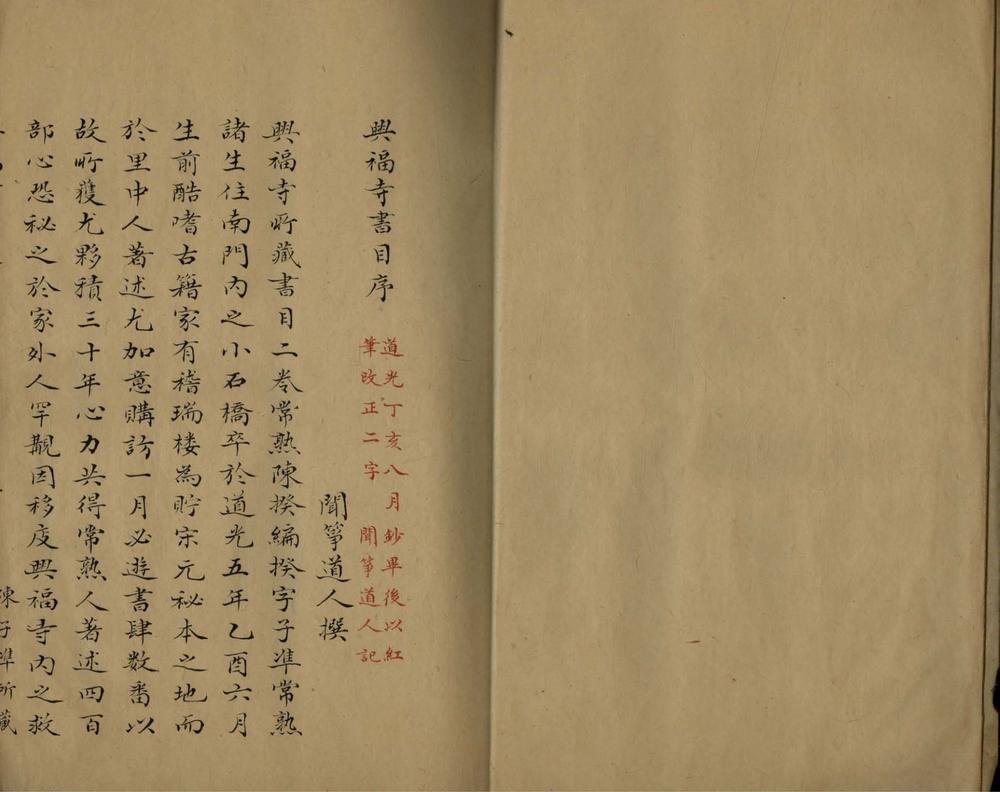 興福寺書目序
道光丁亥八月鈔畢後以紅
筆改正二字　聞箏道人記
聞箏道人撰
興福寺所藏書目二卷常熟陳揆編揆字子準常熟
諸生住南門內之小石橋卒於道光五年乙酉六月
生前酷嗜古籍家有稽瑞楼為貯宋元秘本之地而
於里中人著述尤加意購訪一月必遊書肆数番以
故所獲尤夥積三十年心力共得常熟人著述四百
部心恐秘之於家外人罕覯因移庋興福寺內之救
陳子準所藏